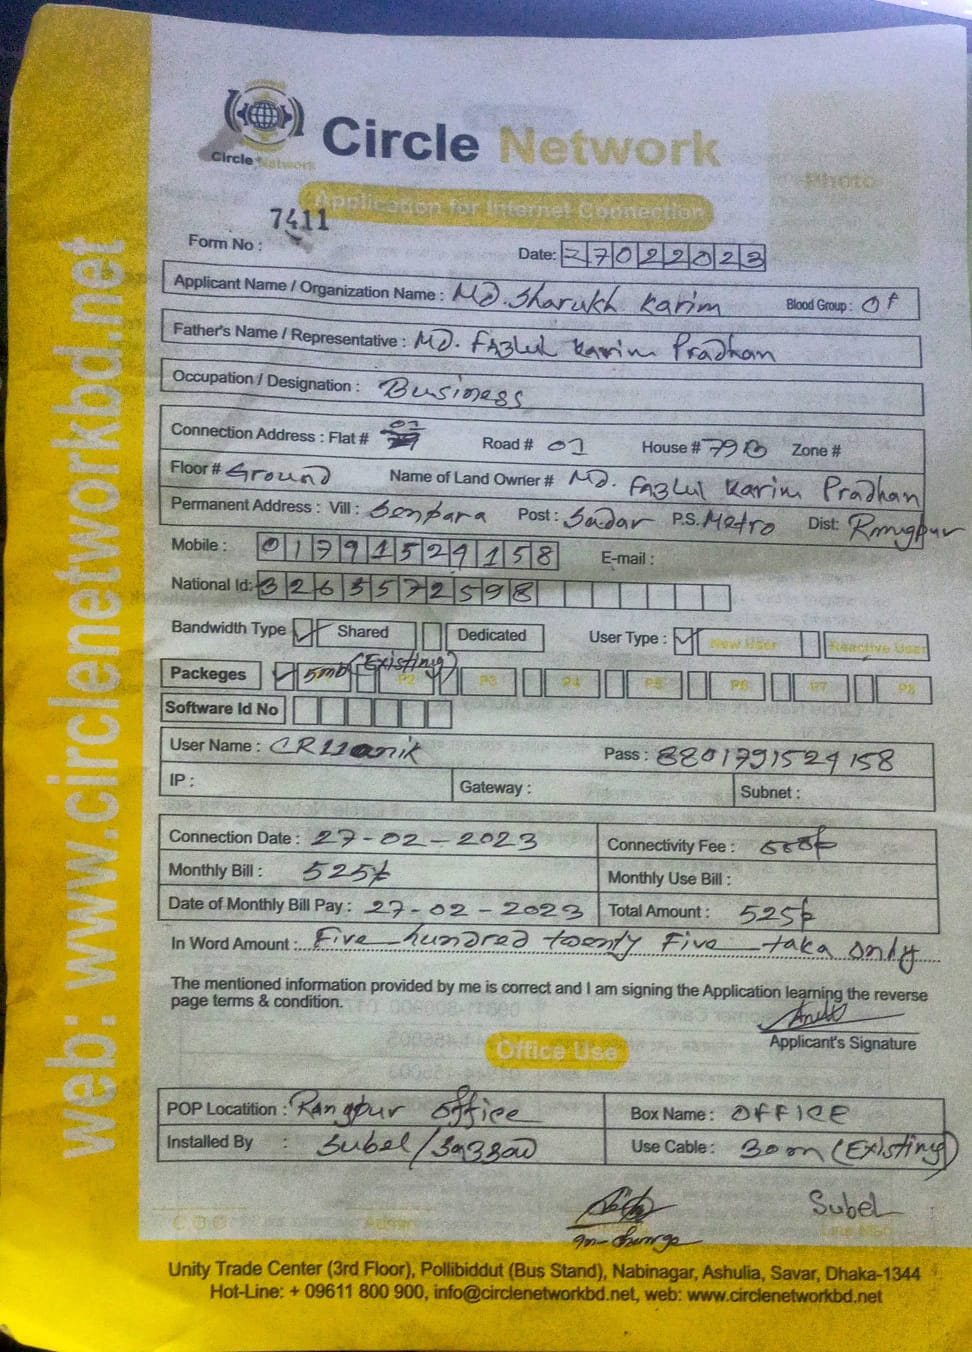 Circle Network
Circle Network
Photo
Application for Internet Connection
7411
Form No :
Date: 27022023
Applicant Name / Organization Name : MD. Sharukh Karim Blood Group : O+
Father's Name / Representative : MD. Fazlul Karim Pradhan
Occupation / Designation : Business
Connection Address : Flat # 01 Road # 01 House # 79 B Zone #
Floor # Ground Name of Land Owner # MD. Fazlul Karim Pradhan
Permanent Address : Vill : Senpara Post : Sadar P.S. Metro Dist: Rangpur
Mobile : 01791529158 E-mail :
National Id: 3263572598
Bandwidth Type Shared Dedicated User Type : New User Reactive User
Packeges 5mb (Existing) P2 P3 P4 P5 P6 P7 P8
Software Id No
User Name : CR11anik Pass : 8801791529158
IP : Gateway : Subnet :
Connection Date : 27-02-2023 Connectivity Fee :
Monthly Bill : 525/- Monthly Use Bill :
Date of Monthly Bill Pay : 27-02-2023 Total Amount : 525/-
In Word Amount : Five hundred twenty Five taka only
The mentioned information provided by me is correct and I am signing the Application learning the reverse
page terms & condition.
Applicant's Signature
Office Use
POP Locatition : Rangpur Office Box Name : OFFICE
Installed By : Subel / Use Cable : 30 m (Existing)
Subel
In-charge
C.O.O Admin
Unity Trade Center (3rd Floor), Pollibiddut (Bus Stand), Nabinagar, Ashulia, Savar, Dhaka-1344
Hot-Line: + 09611 800 900, info@circlenetworkbd.net, web: www.circlenetworkbd.net
web: www.circlenetworkbd.net